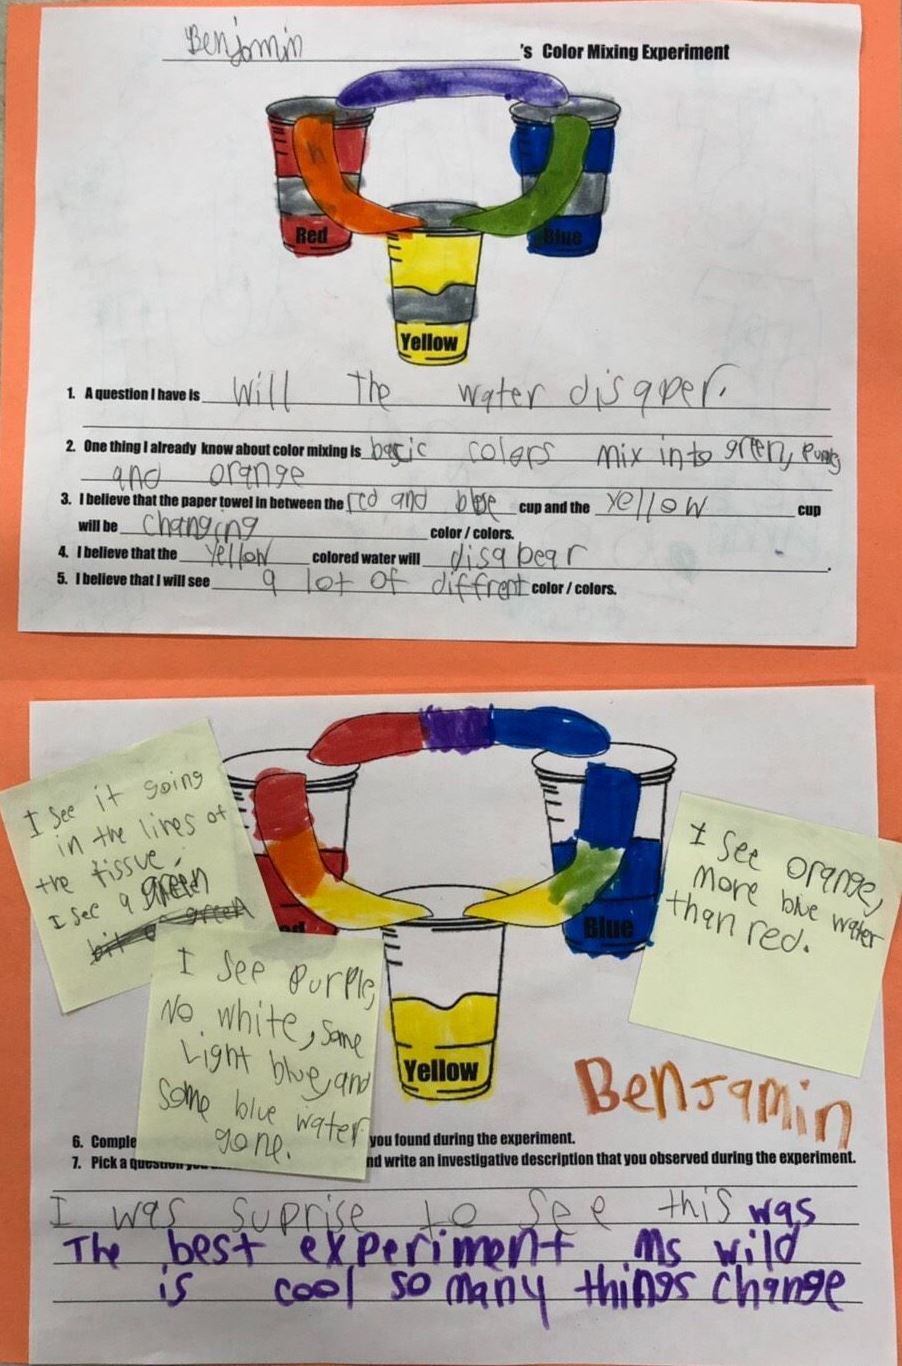 Benjamin 's Color Mixing Experiment
Red
Blue
Yellow
1. A question I have is Will the water disaper.
2. One thing I already know about color mixing is basic colors mix into green,
and orange
3. I believe that the paper towel in between the red and blue cup and the yellow cup
will be changing color / colors.
4. I believe that the yellow colored water will disapear.
5. I believe that I will see a lot of diffrent color / colors.
I see it going
in the lines of
the tissue.
I see a green
green
I see Purple,
No white, some
Light blue, and
some blue water
gone.
I see orange,
more blue water
than red.
Blue
Yellow
Benjamin
6. you found during the experiment.
7. Pick a and write an investigative description that you observed during the experiment.
I was suprise to see this was
The best experiment Ms wild
is cool so many things change